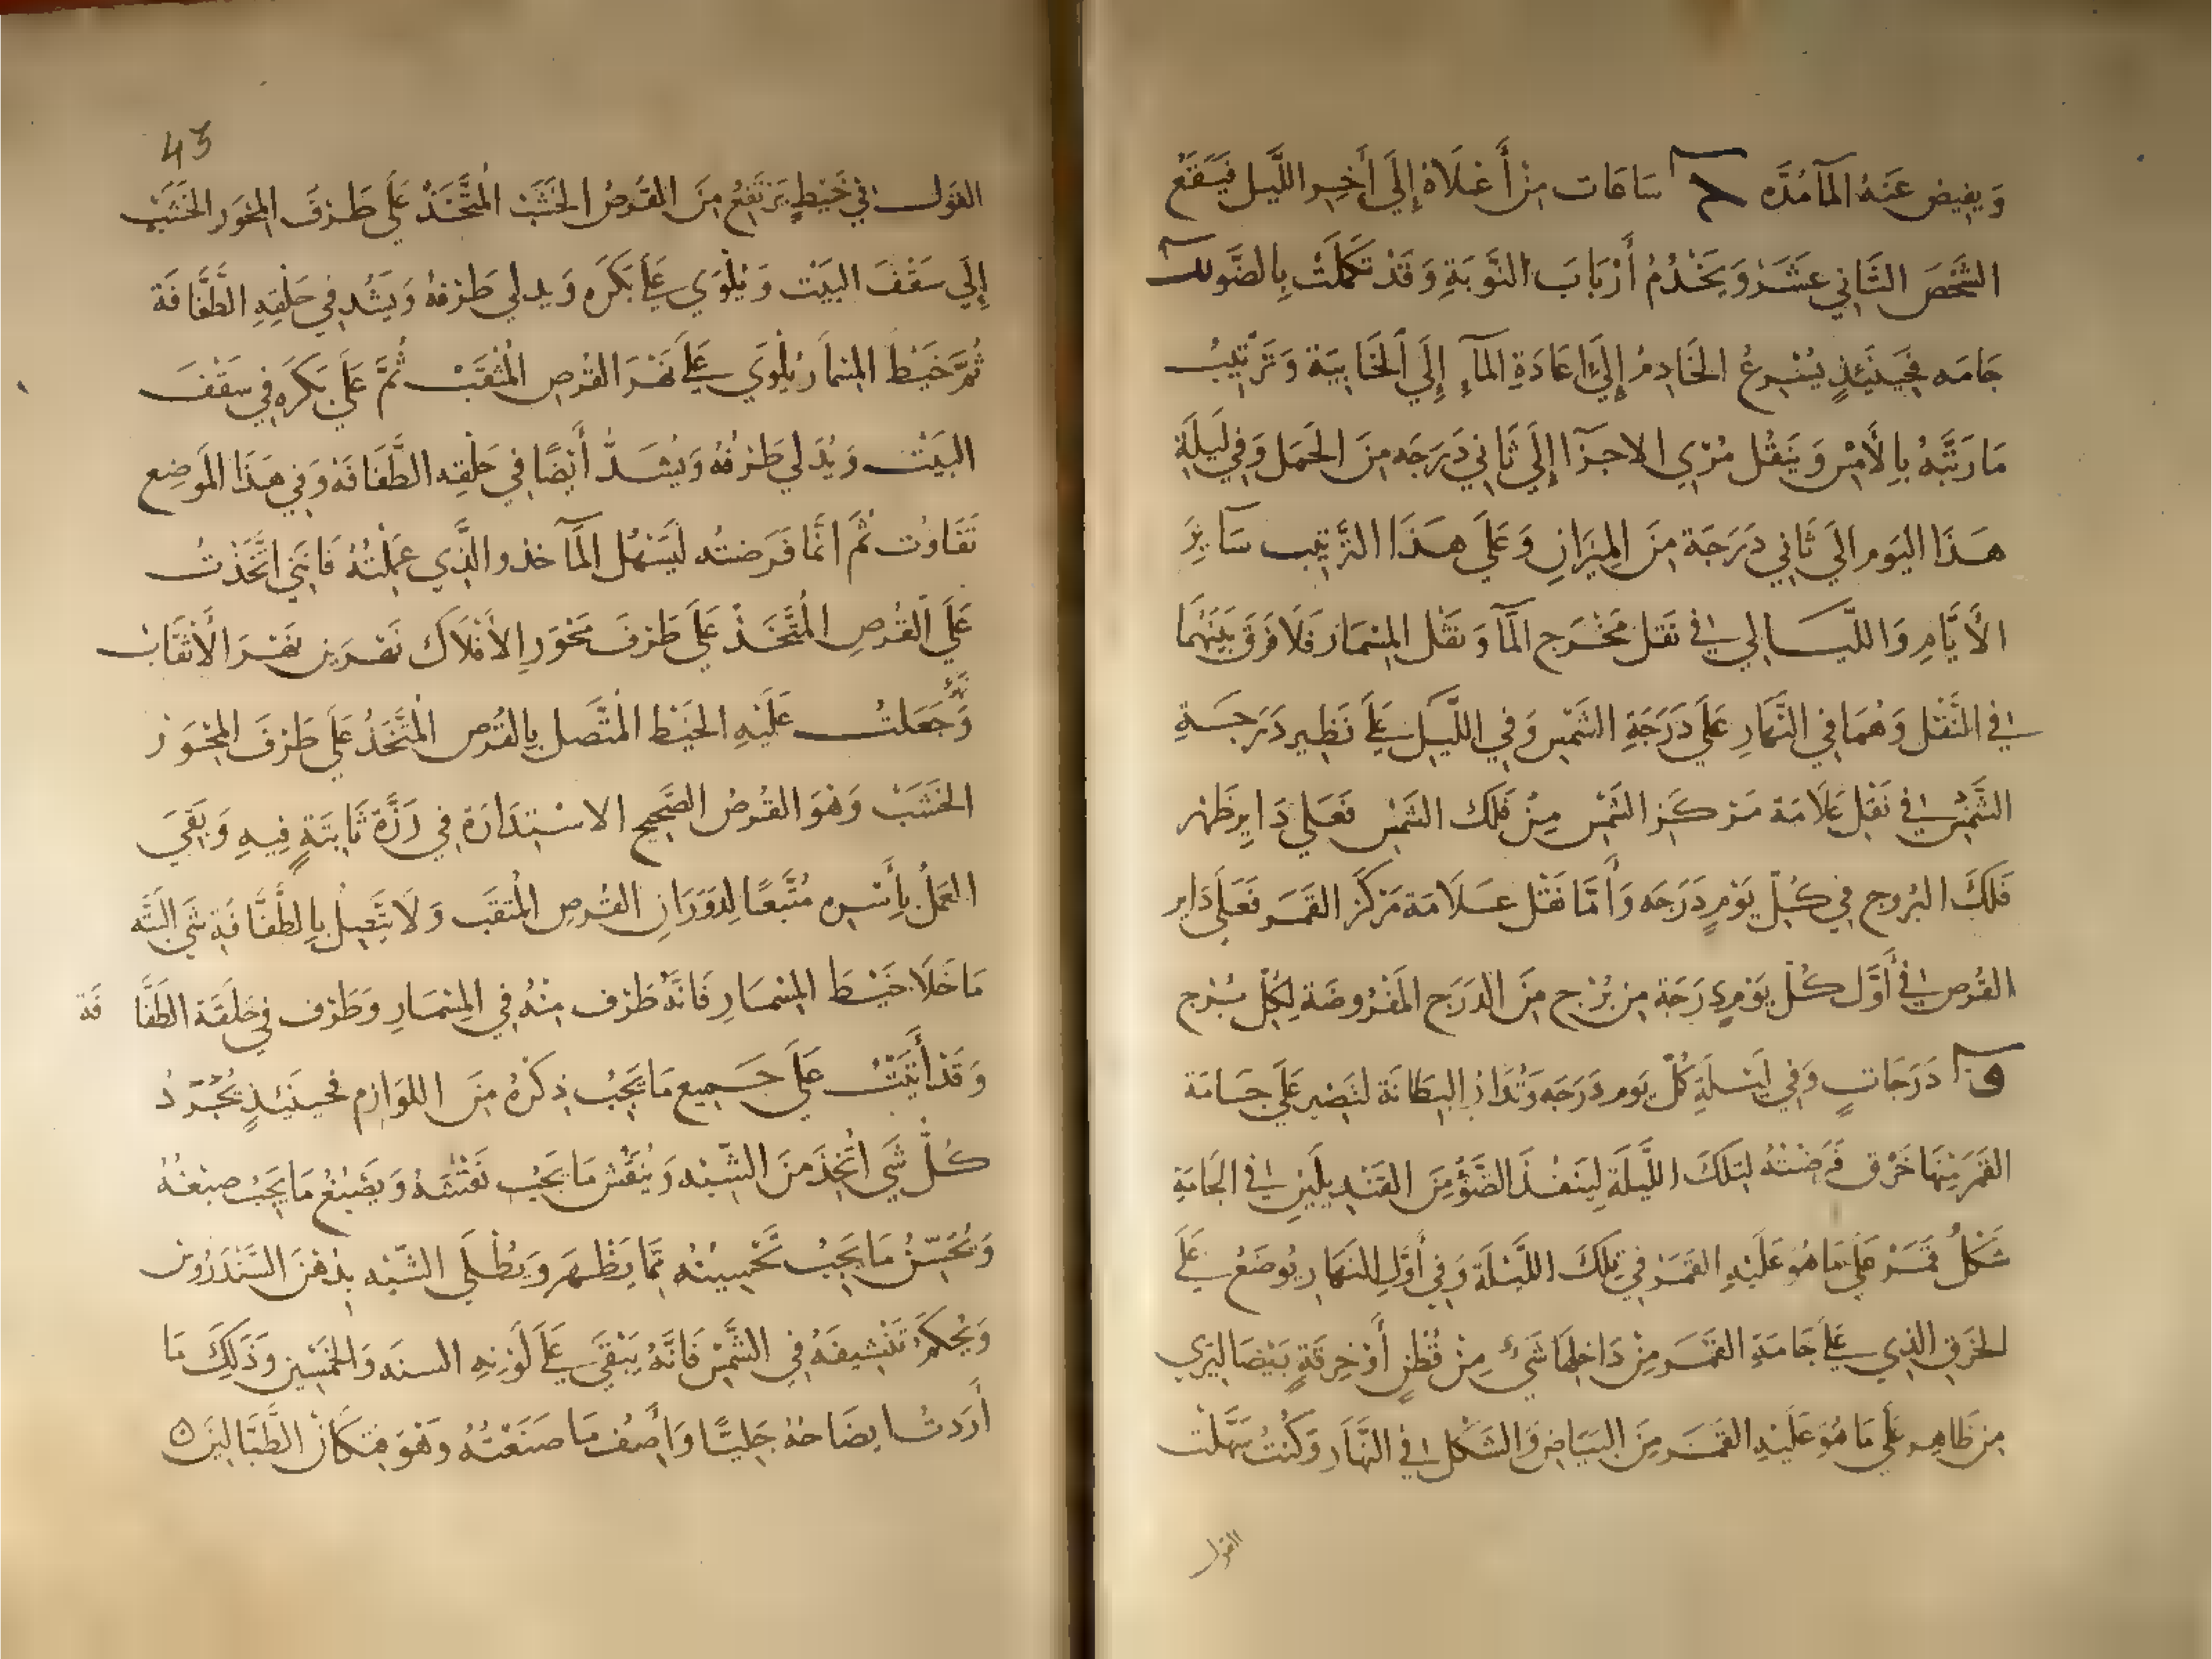 وَيفيض عَنهُ المآ مُدّه ح سَاعَات مِنْ أَعْلَاهُ إِلَى أَخِر اللَّيل فَيَقَعُ
الشَّخصَ الثَاني عَشَر وَيَخْدُمُ أَرْبَابَ النَّوبَةِ وَقَدْ تَكَمَّلَتْ بِالضَّو لب
جَامَه فَحِينَئِذٍ يُسْرِعُ الخَادِمُ إِلَى إِعَادَةِ المآءِ إِلَى الْخَابِيَة وَتَرْتِيبُ
مَا رَتَّبَهُ بِالأَمْسِ وَيَنقُل مُرْي الاجزَا إِلَى ثَانِي دَرَجَه مِنَ الحَمَل وَفِي لَيلَةِ
هَذَا اليَوم الَى ثَانِي دَرَجَة مِنَ المِيزَانِ وَعَلَى هَذَا التَّرتيب سَآيِرَ
الأَيَّامِ وَاللَّيَالي في نَقل مَخْرَج المآ وَنقْل المِسْمَار فَلَا فَرقَ بَيْنَهُمَا
في النَّقْل وَهُمَا في النَّهَارِ عَلَى دَرَجَةِ الشَّمْسِ وَفِي اللَّيل عَلَى نَظِير دَرَجَةِ
الشَّمْسِ في نَقل عَلَامَة مَركَز الشَمْس مِنْ فَلَك الشَمْس فَعَلى دَايِر ظَهر
فَلَكَ البُروج في كُلّ يَوْمٍ دَرَجَه وَأَمَّا نَقْل عَلَامَة مَرْكَز القَمَر فَعَلَى دَاير
القُرص في أَوَّل كُلّ يَوْمٍ دَرَجَة مِن بُرْج مِنَ الدَرَج المَفْرُوضَة لِكُلّ بُرْج
و دَرَجَاتٍ وَفي لَيْلَةِ كُلّ يَوم دَرَجَه وَتُدَارُ البِطَانَة لتَصْير عَلَى جَامَة
القَمَر مِنْهَا خَرْق فَرَضْتُهُ لتِلكَ اللَّيلَةِ لِيَنفُذَ الضَّوْءُ مِنَ القَنْدِيلَيْنِ في الجَامَةِ
شَكْلُ قَمَر عَلَى مَا هُوَ عَلَيْهِ القَمَر فِي تِلكَ اللَّيْلَة وَفِي أَوَّلِ النهَار يُوضَعُ عَلَى
الخَرقِ الذِي عَلَى جَامَةِ القَمَر مِنْ دَاخِلِهَا شَيْءٌ مِنْ قُطْنٍ أَوْ خِرقَةٍ بَيْضَا ليُرَي
مِن ظَاهِر عَلَى مَا هُوَ عَلَيْهِ القَمَر مِنَ البَيَاضِ وَالشَكْل في النَّهَار وَكُنْتُ سَهَّلْت
القول
43
القول في خَيْطٍ يَرْتَفِعُ مِنَ القُرْصُ الخَشَبْ المُتَّخَذْ عَلَى طَرْفَ المِحْوَر الخَشَبْ
إِلَى سَقْفَ البَيْت وَيُلْوَي عَلَى بَكَرَه وَيدلي طَرْفهُ وَيَشُد فِي حَلْقِهِ الطَّفَّافَة
ثُمَّ خَيْطَ المسمَار يُلْوَي عَلَى نَقْرَ القُرص المُثقَبْ ثُمَّ عَلَى بَكَرَه في سَقْفَ
البَيْت وَيُدَلي طَرْفُهُ وَيُشَدُّ أَيْضًا في حَلْقِه الطَّفَافَة وَفي هَذَا المَوضِع
تَفَاوُت ثُمَّ انَّمَا فَرَضتُه ليَسْهُل المآخذ والَّذي عَمِلْتُهُ فَانَنِي اتَّخَذْتُ
عَلَى القُرصِ المُتَّخَذْ عَلَى طَرْفَ مَحْوَرِ الأَفْلَاك نَقْرَيْن نَقْرَ الأَثْقَابْ
وَجَعَلتُ عَلَيْهِ الخَيْط المتَّصل بِالقُرْص المُتَّخَذُ عَلَى طَرْفَ المِحْوَرْ
الخَشَبْ وَهُوَ القُرصُ الصَّحِيح الاسْتِدَارَة في رَزَّةٍ ثَابتَةٍ فِيهِ وَبَقِيَ
العَمَلُ بِأَسْرِه مُتَّبعًا لِدَوَرَانِ القُرصِ المُثقَب وَلَا يَتَّصِلُ بِالطَّفَّافَةِ شَي البَتَّه
مَا خَلَا خَيْطَ المِسْمَارِ فَانَّهُ طَرْف مِنْهُ في المِسْمَارِ وَطَرْف في حَلقَة الطَفَّا فَة
وَقَدْ أَتَيْتُ عَلَى جَمِيع مَا يَجِبُ ذِكْرُهُ مِنَ اللوَازِم فحينَئِذٍ يُجَرّدُ
كُلّ شَي اتُّخِذَ مِنَ الشّبْه وَيُنْقَش مَا يَجِبُ نَقْشهُ وَيَصْبَغُ مَا يَجِبُ صبْغُهُ
وَيُحَسّنُ مَا يَجِبُ تَحْسِينُهُ مِمَّا يَظْهَر وَيُطْلَي الشّبْه بِدُهْنَ السَّنْدَرُوسْ
وَيُحْكَمُ تَنْشِيفَهُ فِي الشَّمْسِ فَانَّهُ يَبْقَي عَلَى لَوْنِهِ السنَه وَالخَمْسِين وَذَلِكَ مَا
أَرَدتُ ايضَاحَهُ جَلِيًّا وَأَصِفُ مَا صَنَعْتُهُ وَهُوَ مَكَانْ الطَّبَّالِينَ ٥